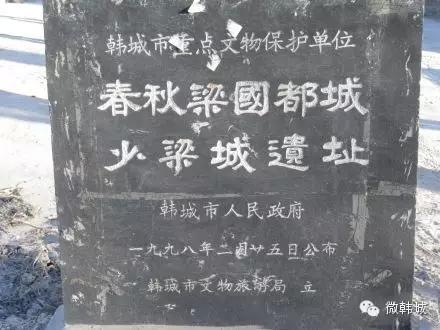 韩城市重点文物保护单位
春秋梁國都城
少梁城遺址
韩城市人民政府
一九九八年二月廿五日公布
韩城市文物旅游局 立
微韩城